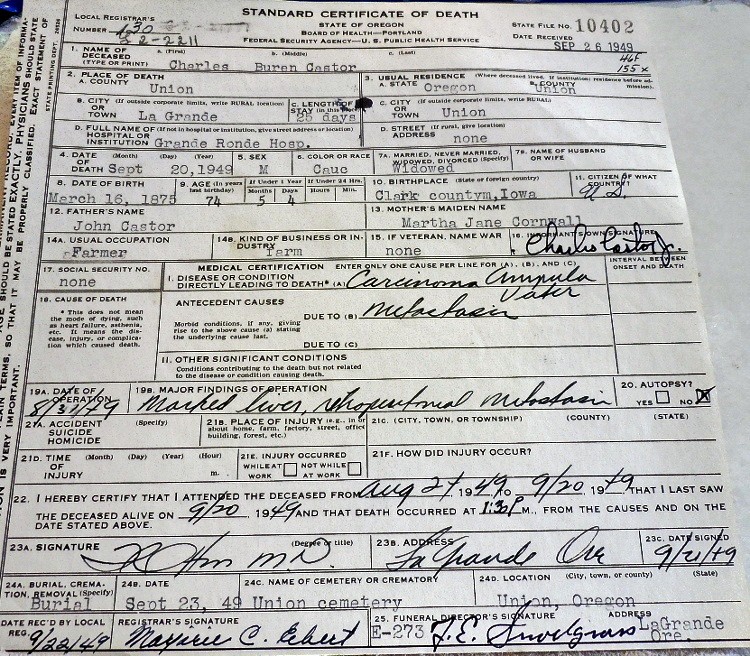 STANDARD CERTIFICATE OF DEATH
LOCAL REGISTRAR'S
NUMBER
STATE OF OREGON
BOARD OF HEALTH—PORTLAND
FEDERAL SECURITY AGENCY—U. S. PUBLIC HEALTH SERVICE
STATE FILE NO. 10402
DATE RECEIVED
SEP 26 1949
1. NAME OF DECEASED (TYPE OR PRINT) a. (First) b. (Middle) c. (Last)
Charles Buren Castor
155x
2. PLACE OF DEATH
A. COUNTY Union
3. USUAL RESIDENCE (Where deceased lived. If institution: residence before admission).
A. STATE Oregon B. COUNTY Union
B. CITY OR TOWN (If outside corporate limits, write RURAL location) La Grande
C. LENGTH OF STAY (in this place) 25 days
C. CITY OR TOWN (If outside corporate limits, write RURAL) Union
D. FULL NAME OF HOSPITAL OR INSTITUTION (If not in hospital or institution, give street address or location) Grande Ronde Hosp.
D. STREET ADDRESS (If rural, give location) none
4. DATE OF DEATH (Month) (Day) (Year) Sept 20, 1949
5. SEX M
6. COLOR OR RACE Cauc
7A. MARRIED, NEVER MARRIED, WIDOWED, DIVORCED (Specify) Widowed
7B. NAME OF HUSBAND OR WIFE
8. DATE OF BIRTH March 16, 1875
9. AGE (In years last birthday) 74
If Under 1 Year Months 5 Days 4
If Under 24 Hrs. Hours Min.
10. BIRTHPLACE (State or foreign country) Clark countym, Iowa
11. CITIZEN OF WHAT COUNTRY? U.S.
12. FATHER'S NAME John Castor
13. MOTHER'S MAIDEN NAME Martha Jane Cornwall
14A. USUAL OCCUPATION Farmer
14B. KIND OF BUSINESS OR INDUSTRY farm
15. IF VETERAN, NAME WAR none
16. INFORMANT'S OWN SIGNATURE Charlie Castor Jr.
17. SOCIAL SECURITY NO. none
MEDICAL CERTIFICATION ENTER ONLY ONE CAUSE PER LINE FOR (A), (B), AND (C)
INTERVAL BETWEEN ONSET AND DEATH
18. CAUSE OF DEATH
* This does not mean the mode of dying, such as heart failure, asthenia, etc. It means the disease, injury, or complication which caused death.
I. DISEASE OR CONDITION DIRECTLY LEADING TO DEATH* (A) Carcinoma Ampula Vater
ANTECEDENT CAUSES
DUE TO (B) Metastasis
Morbid conditions, if any, giving rise to the above cause (a) stating the underlying cause last.
DUE TO (C)
II. OTHER SIGNIFICANT CONDITIONS
Conditions contributing to the death but not related to the disease or condition causing death.
19A. DATE OF OPERATION
19B. MAJOR FINDINGS OF OPERATION Marked liver, retroperitoneal Metastasis
20. AUTOPSY? YES NO X
21A. ACCIDENT SUICIDE HOMICIDE (Specify)
21B. PLACE OF INJURY (e.g., in or about home, farm, factory, street, office building, forest, etc.)
21C. (CITY, TOWN, OR TOWNSHIP) (COUNTY) (STATE)
21D. TIME OF INJURY (Month) (Day) (Year) (Hour) m.
21E. INJURY OCCURRED WHILE AT WORK NOT WHILE AT WORK
21F. HOW DID INJURY OCCUR?
22. I HEREBY CERTIFY THAT I ATTENDED THE DECEASED FROM Aug 27, 1949 TO 9/20 1949 THAT I LAST SAW
THE DECEASED ALIVE ON 9/20 1949 AND THAT DEATH OCCURRED AT 1:30 P M., FROM THE CAUSES AND ON THE
DATE STATED ABOVE.
23A. SIGNATURE (Degree or title) MD.
23B. ADDRESS La Grande Ore
23C. DATE SIGNED 9/21/49
24A. BURIAL, CREMATION, REMOVAL (Specify) Burial
24B. DATE Sept 23, 49
24C. NAME OF CEMETERY OR CREMATORY Union cemetery
24D. LOCATION (City, town, or county) (State) Union, Oregon
DATE REC'D BY LOCAL REG. 9/22/49
REGISTRAR'S SIGNATURE Marjorie C. Ebert
25. FUNERAL DIRECTOR'S SIGNATURE E-273 F. E. Snodgrass
ADDRESS LaGrande Ore.